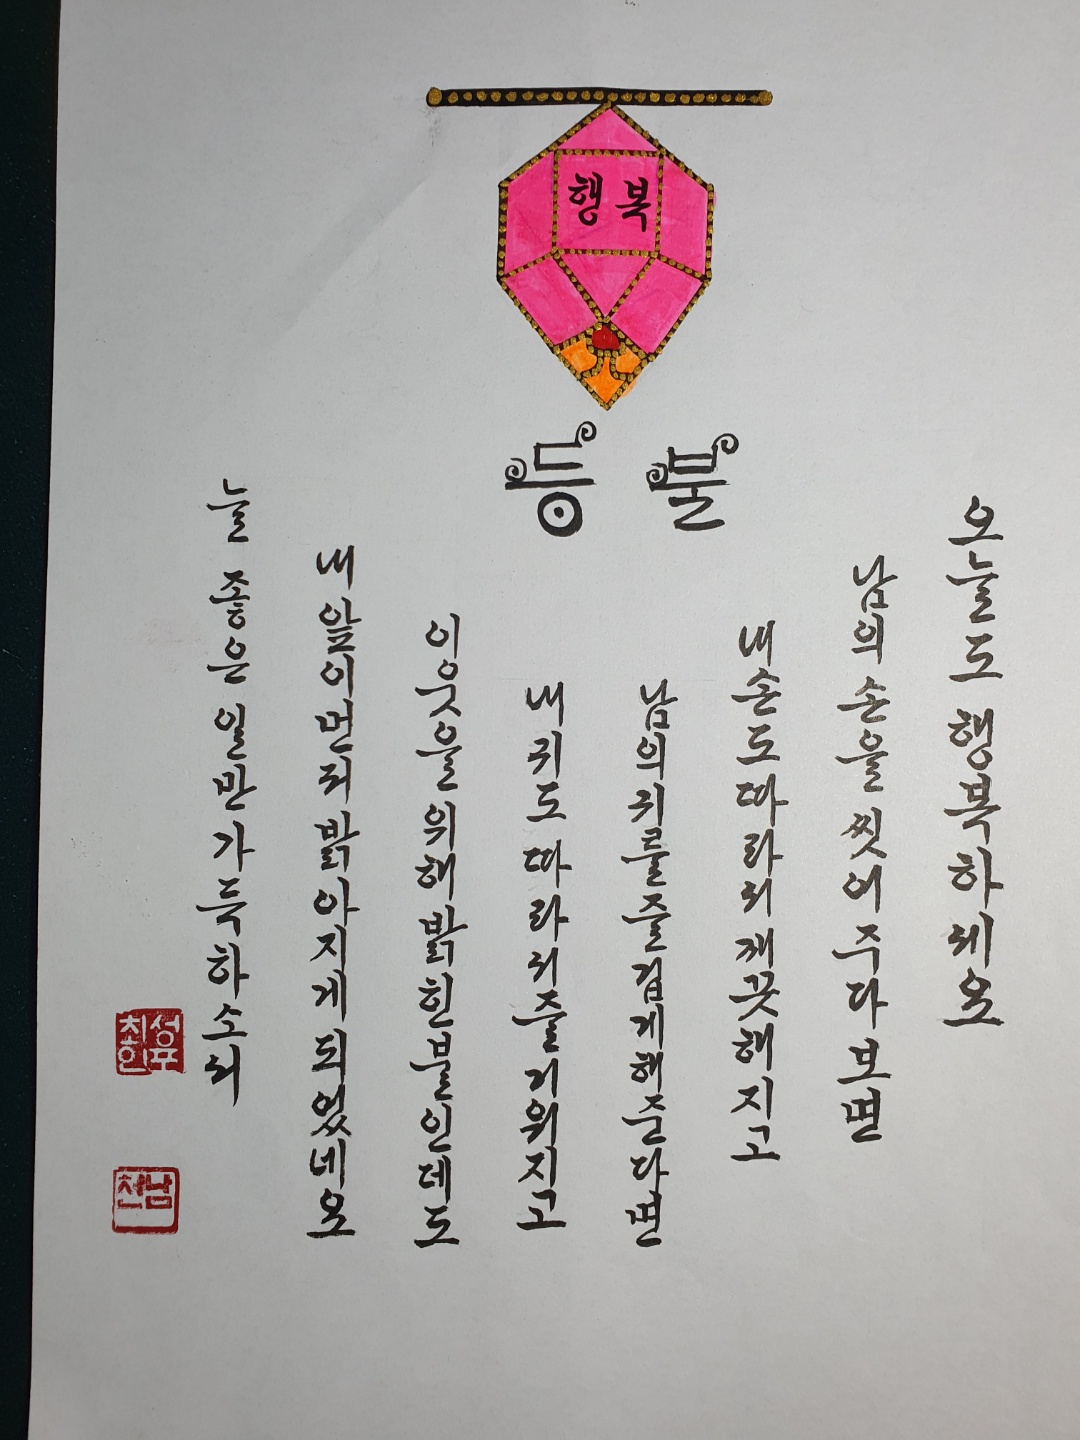 행복
등불
오늘도 행복하세요
남의 손을 씻어주다보면
내손도따라서깨끗해지고
남의귀를즐겁게해준다면
내귀도따라서즐거워지고
이웃을위해밝힌불인데도
내앞이먼저밝아지게되었네요
늘 좋은 일만 가득하소서
남천